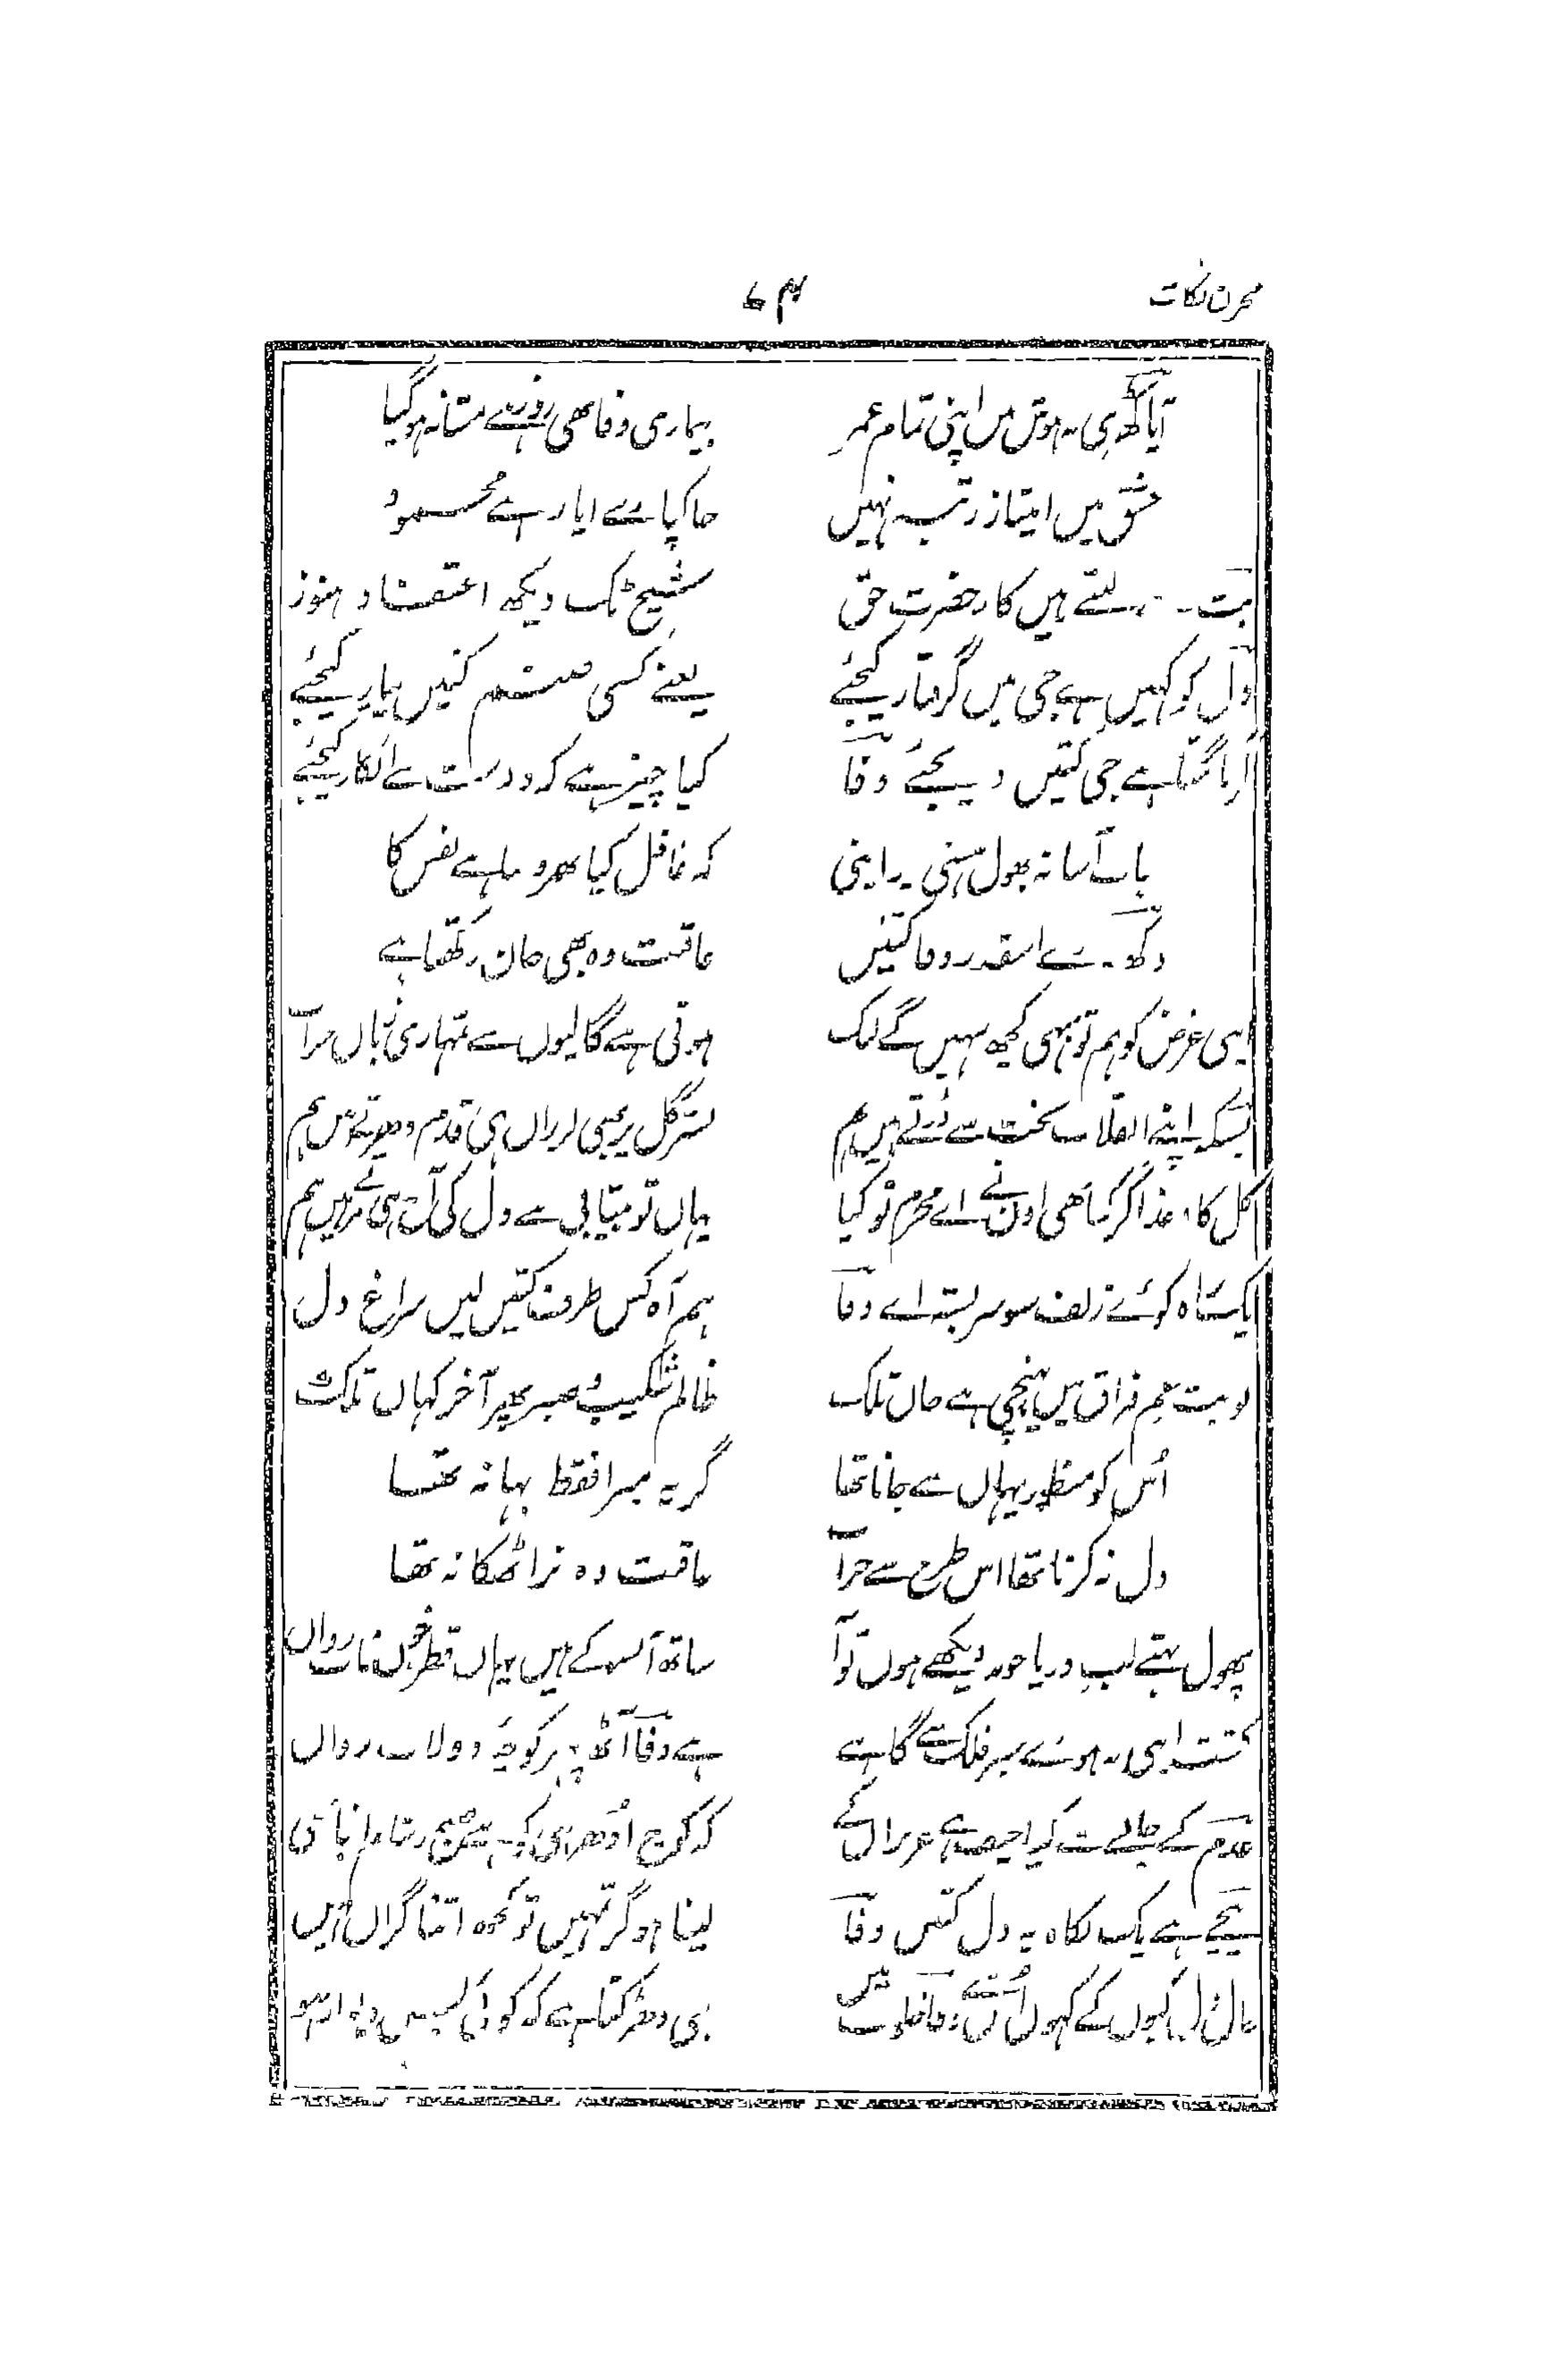 مخزن نکات ۷۴
آیا کبھی نہ ہوش میں اپنی تمام عمر بیماری وفا بھی روز سے مستانہ ہوگیا
عشق میں امتیاز رتبہ نہیں خاکپا ہے ایاز سے محمود
بت لیتے ہیں کار حضرت حق شیخ ٹک دیکھ اعتقاد ہنوز
دل کو کہیں ہے جی میں گرفتار کیجئے یعنے کسی صنم کتیں پیار کیجئے
ہے جی کتیں دیجئے وفا کیا چیز ہے کہ دوست سے انکار کیجئے
آسا نہ بھول ہستی پر اپنی کہ غافل کیا بھروسا ہے نفس کا
دکھ نہ دے اسقدر وفا کتیں عاقبت وہ بھی جان رکھتا ہے
ایسی غرض کو ہم تو نہیں کچھ کہیں گے لیک ہوتی ہے گالیوں سے تمہاری زباں خراب
بسکہ اپنے انقلاب بخت سے ڈرتے ہیں ہم بستر گل پر بھی لرزاں ہی قدم دھرتے ہیں ہم
کل کا وعدہ گر کیا بھی اون نے اے محرم تو کیا یہاں تو بیتابی سے دل کی آج ہی مرتے ہیں ہم
یک شاہ کوئے زلف سو سر بستہ اے وفا ہم آہ کس طرف کتیں لیں سراغ دل
نوبت غم فراق میں پہنچی ہے جاں تلک ظالم شکیب و صبر پھر آخر کہاں تلک
اُس کو منظور یہاں سے جانا تھا گریہ میرا فقط بہانہ تھا
دل نہ کرنا تھا اس طرح سے خراب عاقبت وہ ترا ٹھکانہ تھا
پھول بہتے لب دریا جو نہ دیکھے ہوں تو آ ساتھ آنسو کے ہیں یہاں قطرۂ خوں ناب رواں
کشت اپنی نہ ہوئے سبز فلک سے گاہے ہے وفا آٹھ پہر گرچہ دولاب رواں
عدم کے جانے سے کیا اچنبھا ہے عزیزاں کے کہ کوچ اودھر ہی کو
بیچے ہے یک نگاہ پہ دل کتیں وفا لینا ہو گر تمہیں تو کچھ اتنا گراں نہیں
حال دل کیوں کے کہوں اُس سے وفا خلوت میں جی دھڑکتا ہے کہ کوئی پس دیوار نہ ہو